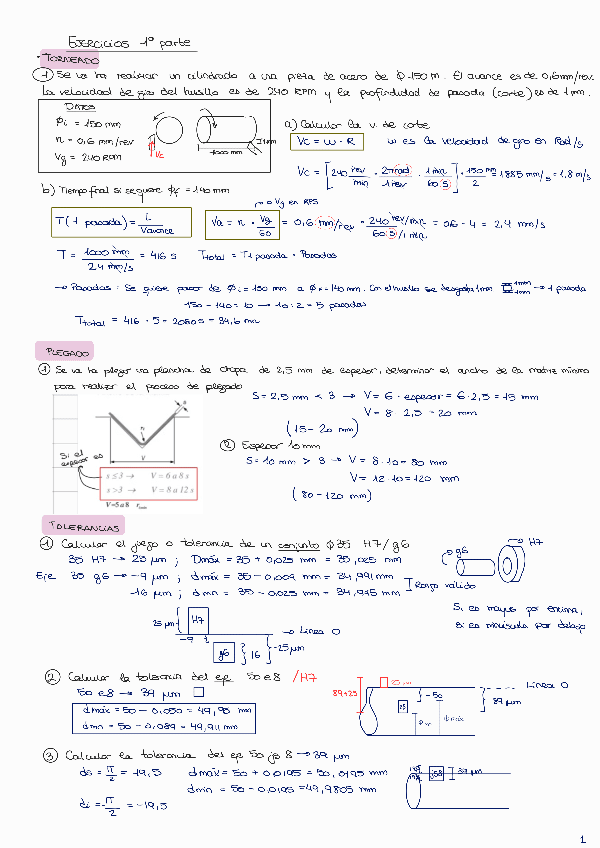 EJERCICIOS 1º parte
TORNEADO
1 Se va ha realizar un cilindrado a una pieza de acero de ϕ 150 m. El avance es de 0,6mm/rev.
La velocidad de giro del husillo es de 240 RPM y la profundidad de pasada (corte) es de 1 mm.
DATOS
ϕi = 150 mm
n = 0,6 mm/rev
Vg = 240 RPM
Vc
1000 mm
1mm
a) Calcular la v. de corte
Vc = ω · R
ω es la velocidad de giro en Rad/s
Vc = [240 rev/min · 2π rad/1 rev · 1 min/60 s] · 150 mm/2 = 1885 mm/s = 1,8 m/s
b) Tiempo final si se quiere ϕf = 140 mm
Vg en RPS
T (1 pasada) = L/Vavance
Va = n · Vg/60 = 0,6 mm/rev · 240 rev/min / 60 s/1 min = 0,6 · 4 = 2,4 mm/s
T = 1000 mm / 2,4 mm/s = 416 s
Ttotal = T1 pasada · Pasadas
→ Pasadas: Se quiere pasar de ϕi = 150 mm a ϕf = 140 mm. Con el husillo se desgasta 1mm
1mm
1mm
→ 1 pasada
150 - 140 = 10 → 10 : 2 = 5 pasadas
Ttotal = 416 · 5 = 2080 s = 34,6 min
PLEGADO
1 Se va a plegar una plancha de chapa de 2,5 mm de espesor, determinar el ancho de la matriz mínimo
para realizar el proceso de plegado
S = 2,5 mm < 3 → V = 6 · espesor = 6 · 2,5 = 15 mm
V = 8 · 2,5 = 20 mm
(15 - 20 mm)
V
Si el espesor es
s≤3 → V=6 a 8 s
s>3 → V=8 a 12 s
V=5 a 8
2 Espesor 10 mm
S = 10 mm > 3 → V = 8 · 10 = 80 mm
V = 12 · 10 = 120 mm
(80 - 120 mm)
TOLERANCIAS
1 Calcular el juego o tolerancia de un conjunto ϕ 35 H7/g6
35 H7 → 25 μm ; Dmáx = 35 + 0,025 mm = 35,025 mm
Eje 35 g6 → -9 μm ; dmáx = 35 - 0,009 mm = 34,991 mm
-16 μm ; dmin = 35 - 0,025 mm = 34,975 mm
Rango válido
g6
H7
Si es mayus por encima,
si es minúscula por debajo
25 μm
H7
→ Línea 0
-9
g6
16
-25 μm
2 Calcular la tolerancia del eje 50 e8 /H7
50 e8 → 39 μm
dmáx = 50 - 0,050 = 49,95 mm
dmin = 50 - 0,089 = 49,911 mm
89+25
e8
-50
39 μm
Línea 0
3 Calcular la tolerancia del eje 50 js 8 → 39 μm
ds = IT/2 = +19,5
dmáx = 50 + 0,0195 = 50,0195 mm
dmin = 50 - 0,0195 = 49,9805 mm
di = -IT/2 = -19,5
js8
39 μm
1